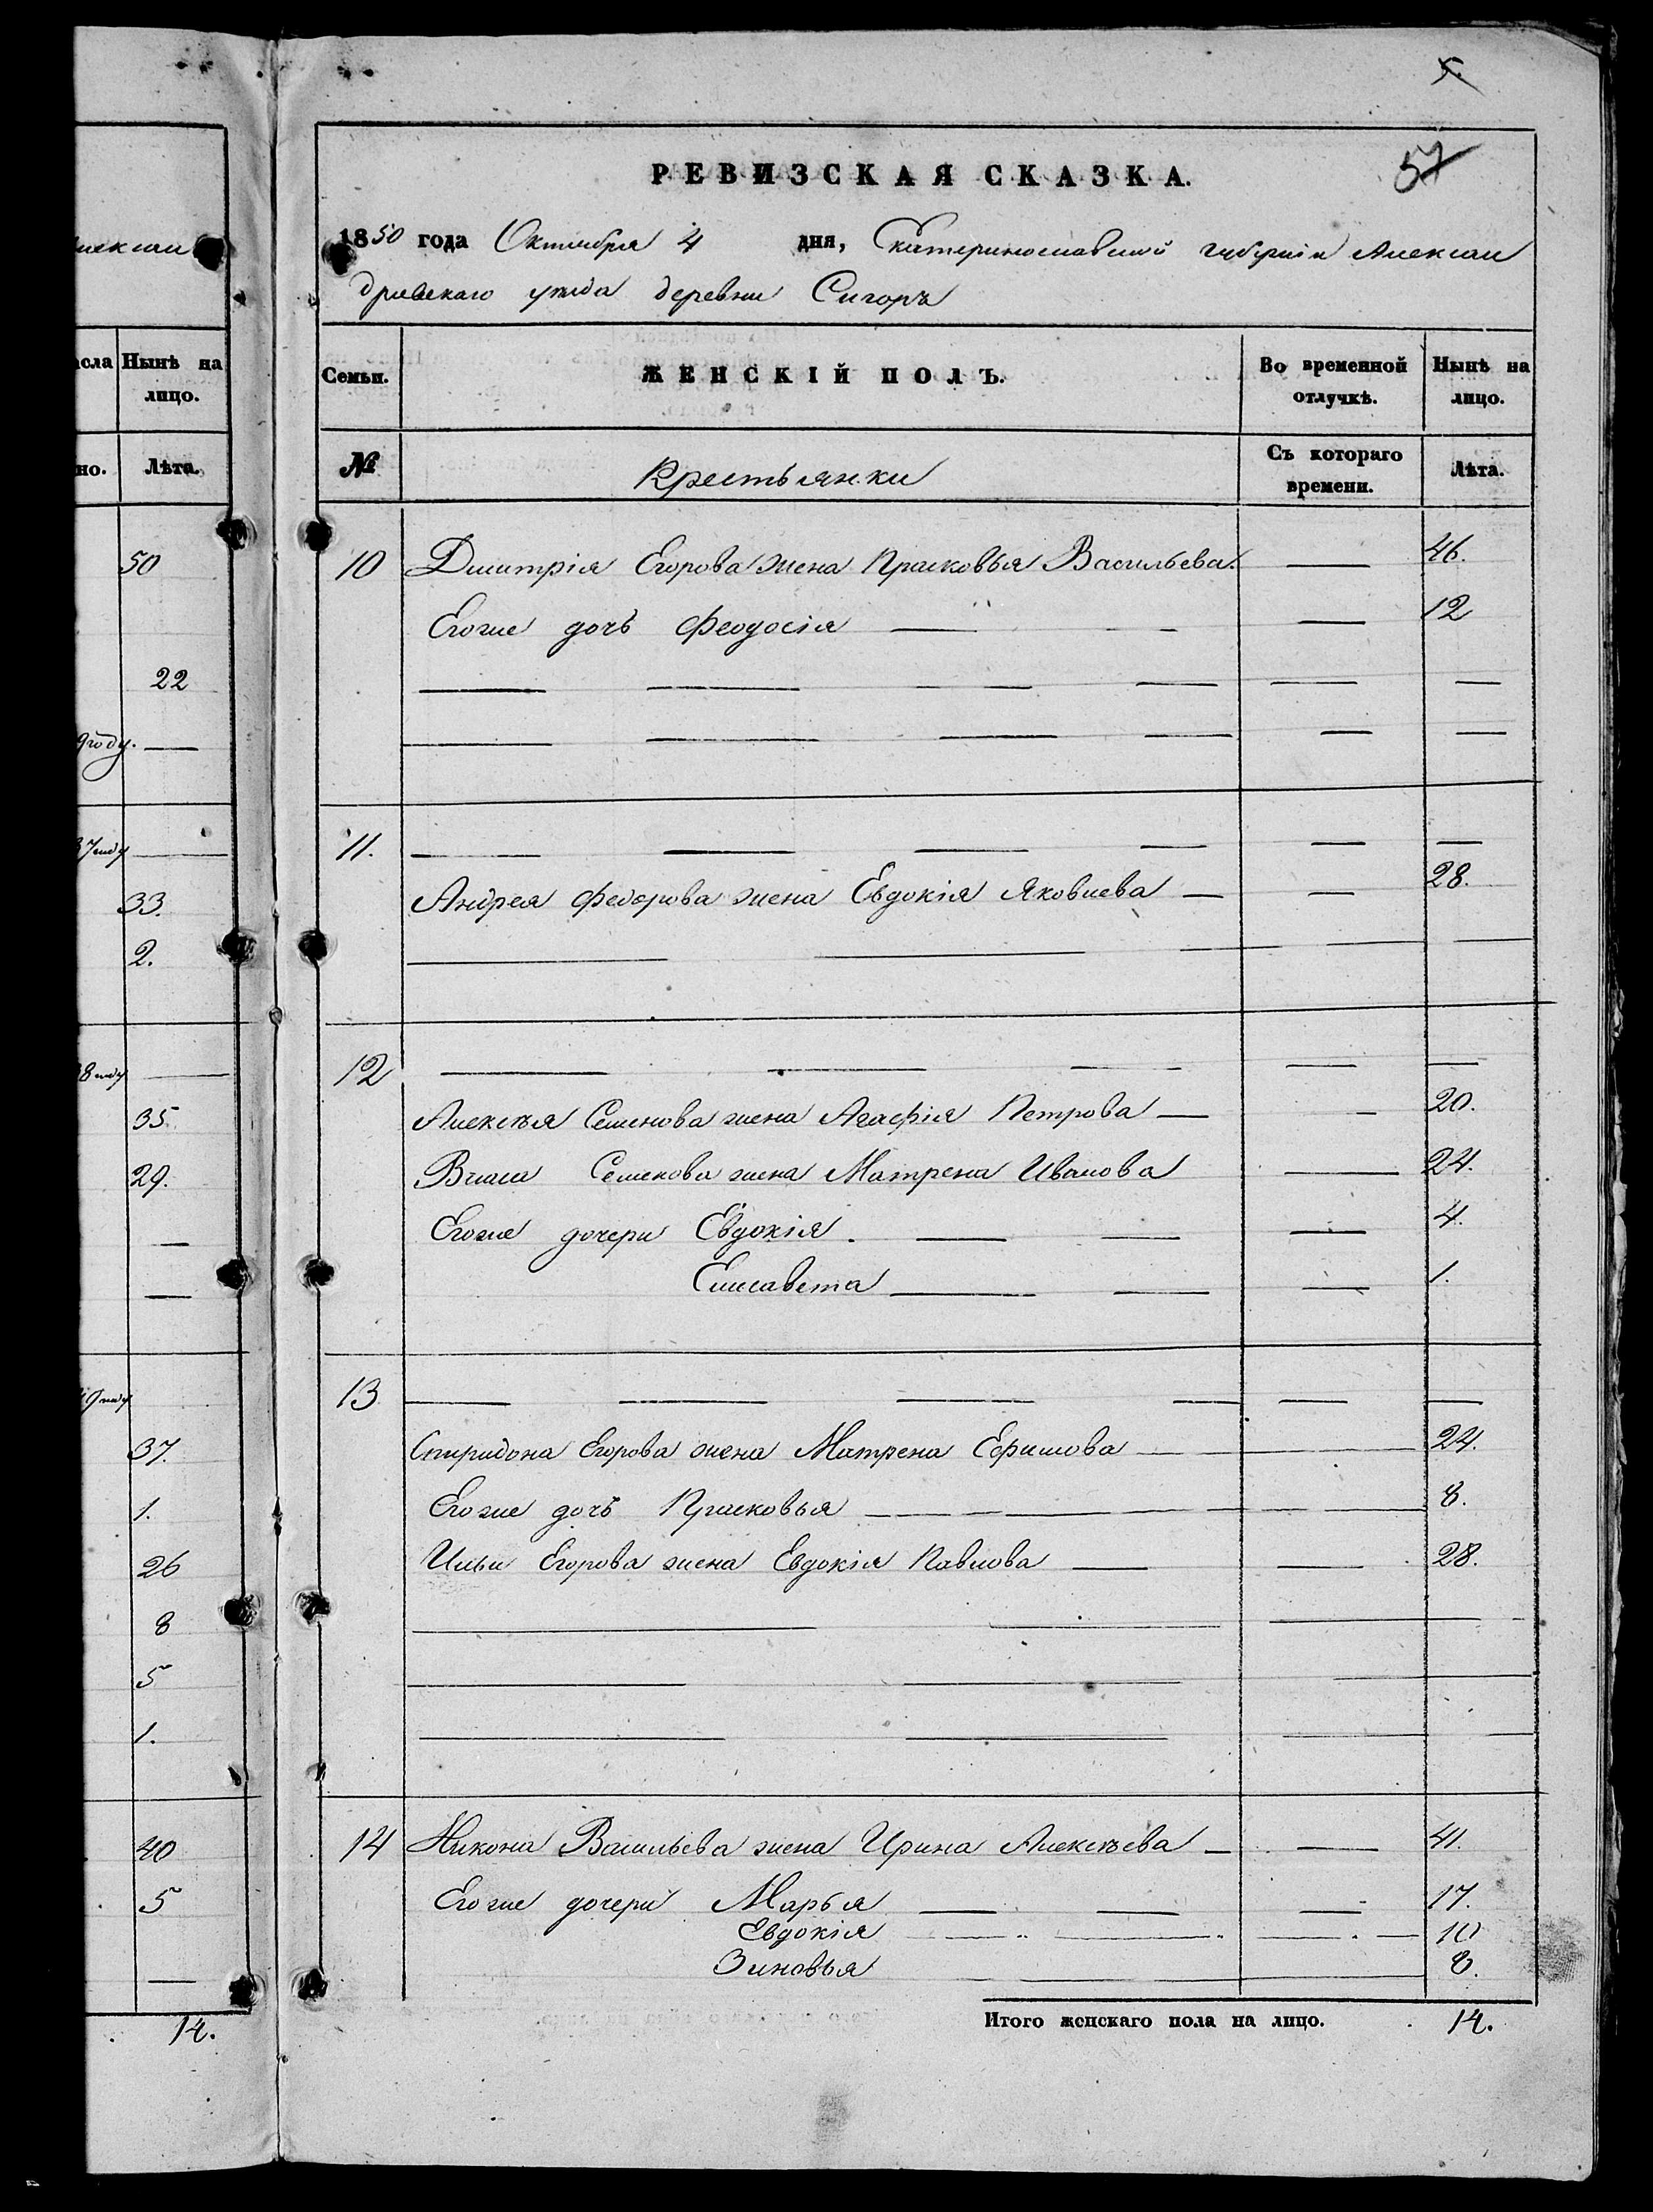 лексан
исла Нынѣ на
лицо.
но. Лѣта.
50
22
9 году. —
37 году —
33.
2.
38 году —
35.
29.
—
—
49 году
37.
1.
26
8
5
1.
40
5
—
14.
5.
РЕВИЗСКАЯ СКАЗКА.
57
1850 года Октября 4 дня, Екатеринославской губерніи Алексан
дровскаго уѣзда деревни Сигоръ
Семьи. ЖЕНСКІЙ ПОЛЪ. Во временной отлучкѣ. Нынѣ на лицо.
№ Крестьянки Съ котораго времени. Лѣта.
10 Дмитрія Егорова жена Прасковья Васильева. — 46.
Егоже дочь Феодосія — — — 12
— — — — — —
— — — — — —
11. — — — — — —
Андрея Федорова жена Евдокія Яковлева — — 28.
— — — — —
12 — — — — —
Алексѣя Семенова жена Агафія Петрова — — 20.
Власа Семенова жена Матрена Иванова — 24.
Егоже дочери Евдокія. — — — 4.
Елисавета — — — 1.
13 — — — — — —
Спиридона Егорова жена Матрена Ефимова — — 24.
Егоже дочь Прасковья — — — — — 8.
Ильи Егорова жена Евдокія Павлова — — 28.
— — —
— — —
— — — —
14 Никона Васильева жена Ирина Алексѣева — — 41.
Егоже дочери Марья — — — 17.
Евдокія — — — — 10
Зиновья — — 8.
Итого женскаго пола на лицо. 14.